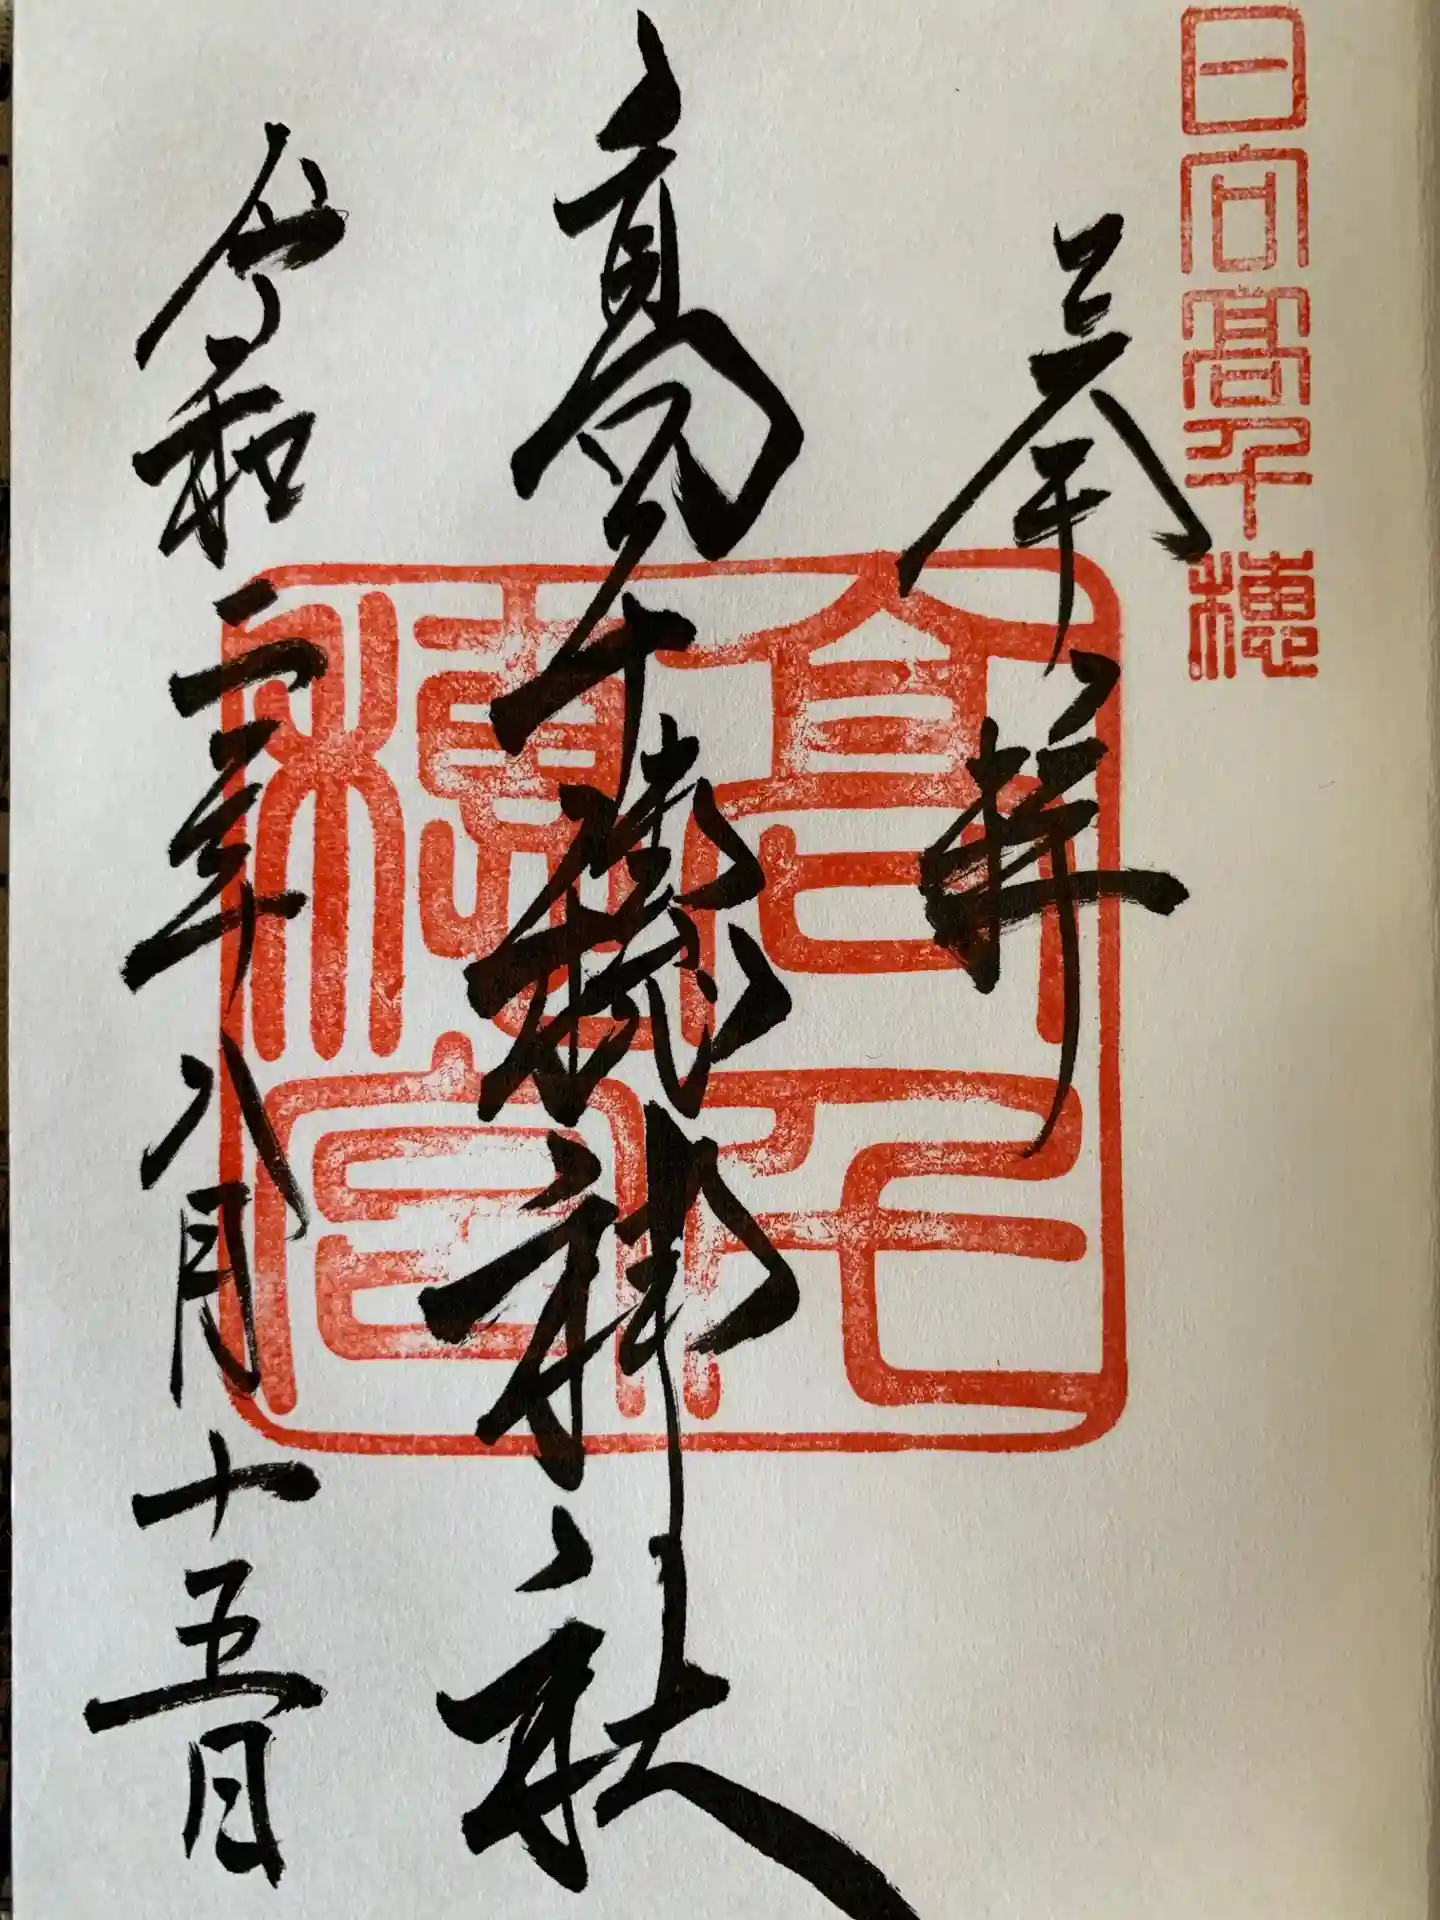 日向髙千穂
奉拝
高千穂神社
高千穂宮
令和二年八月十五日